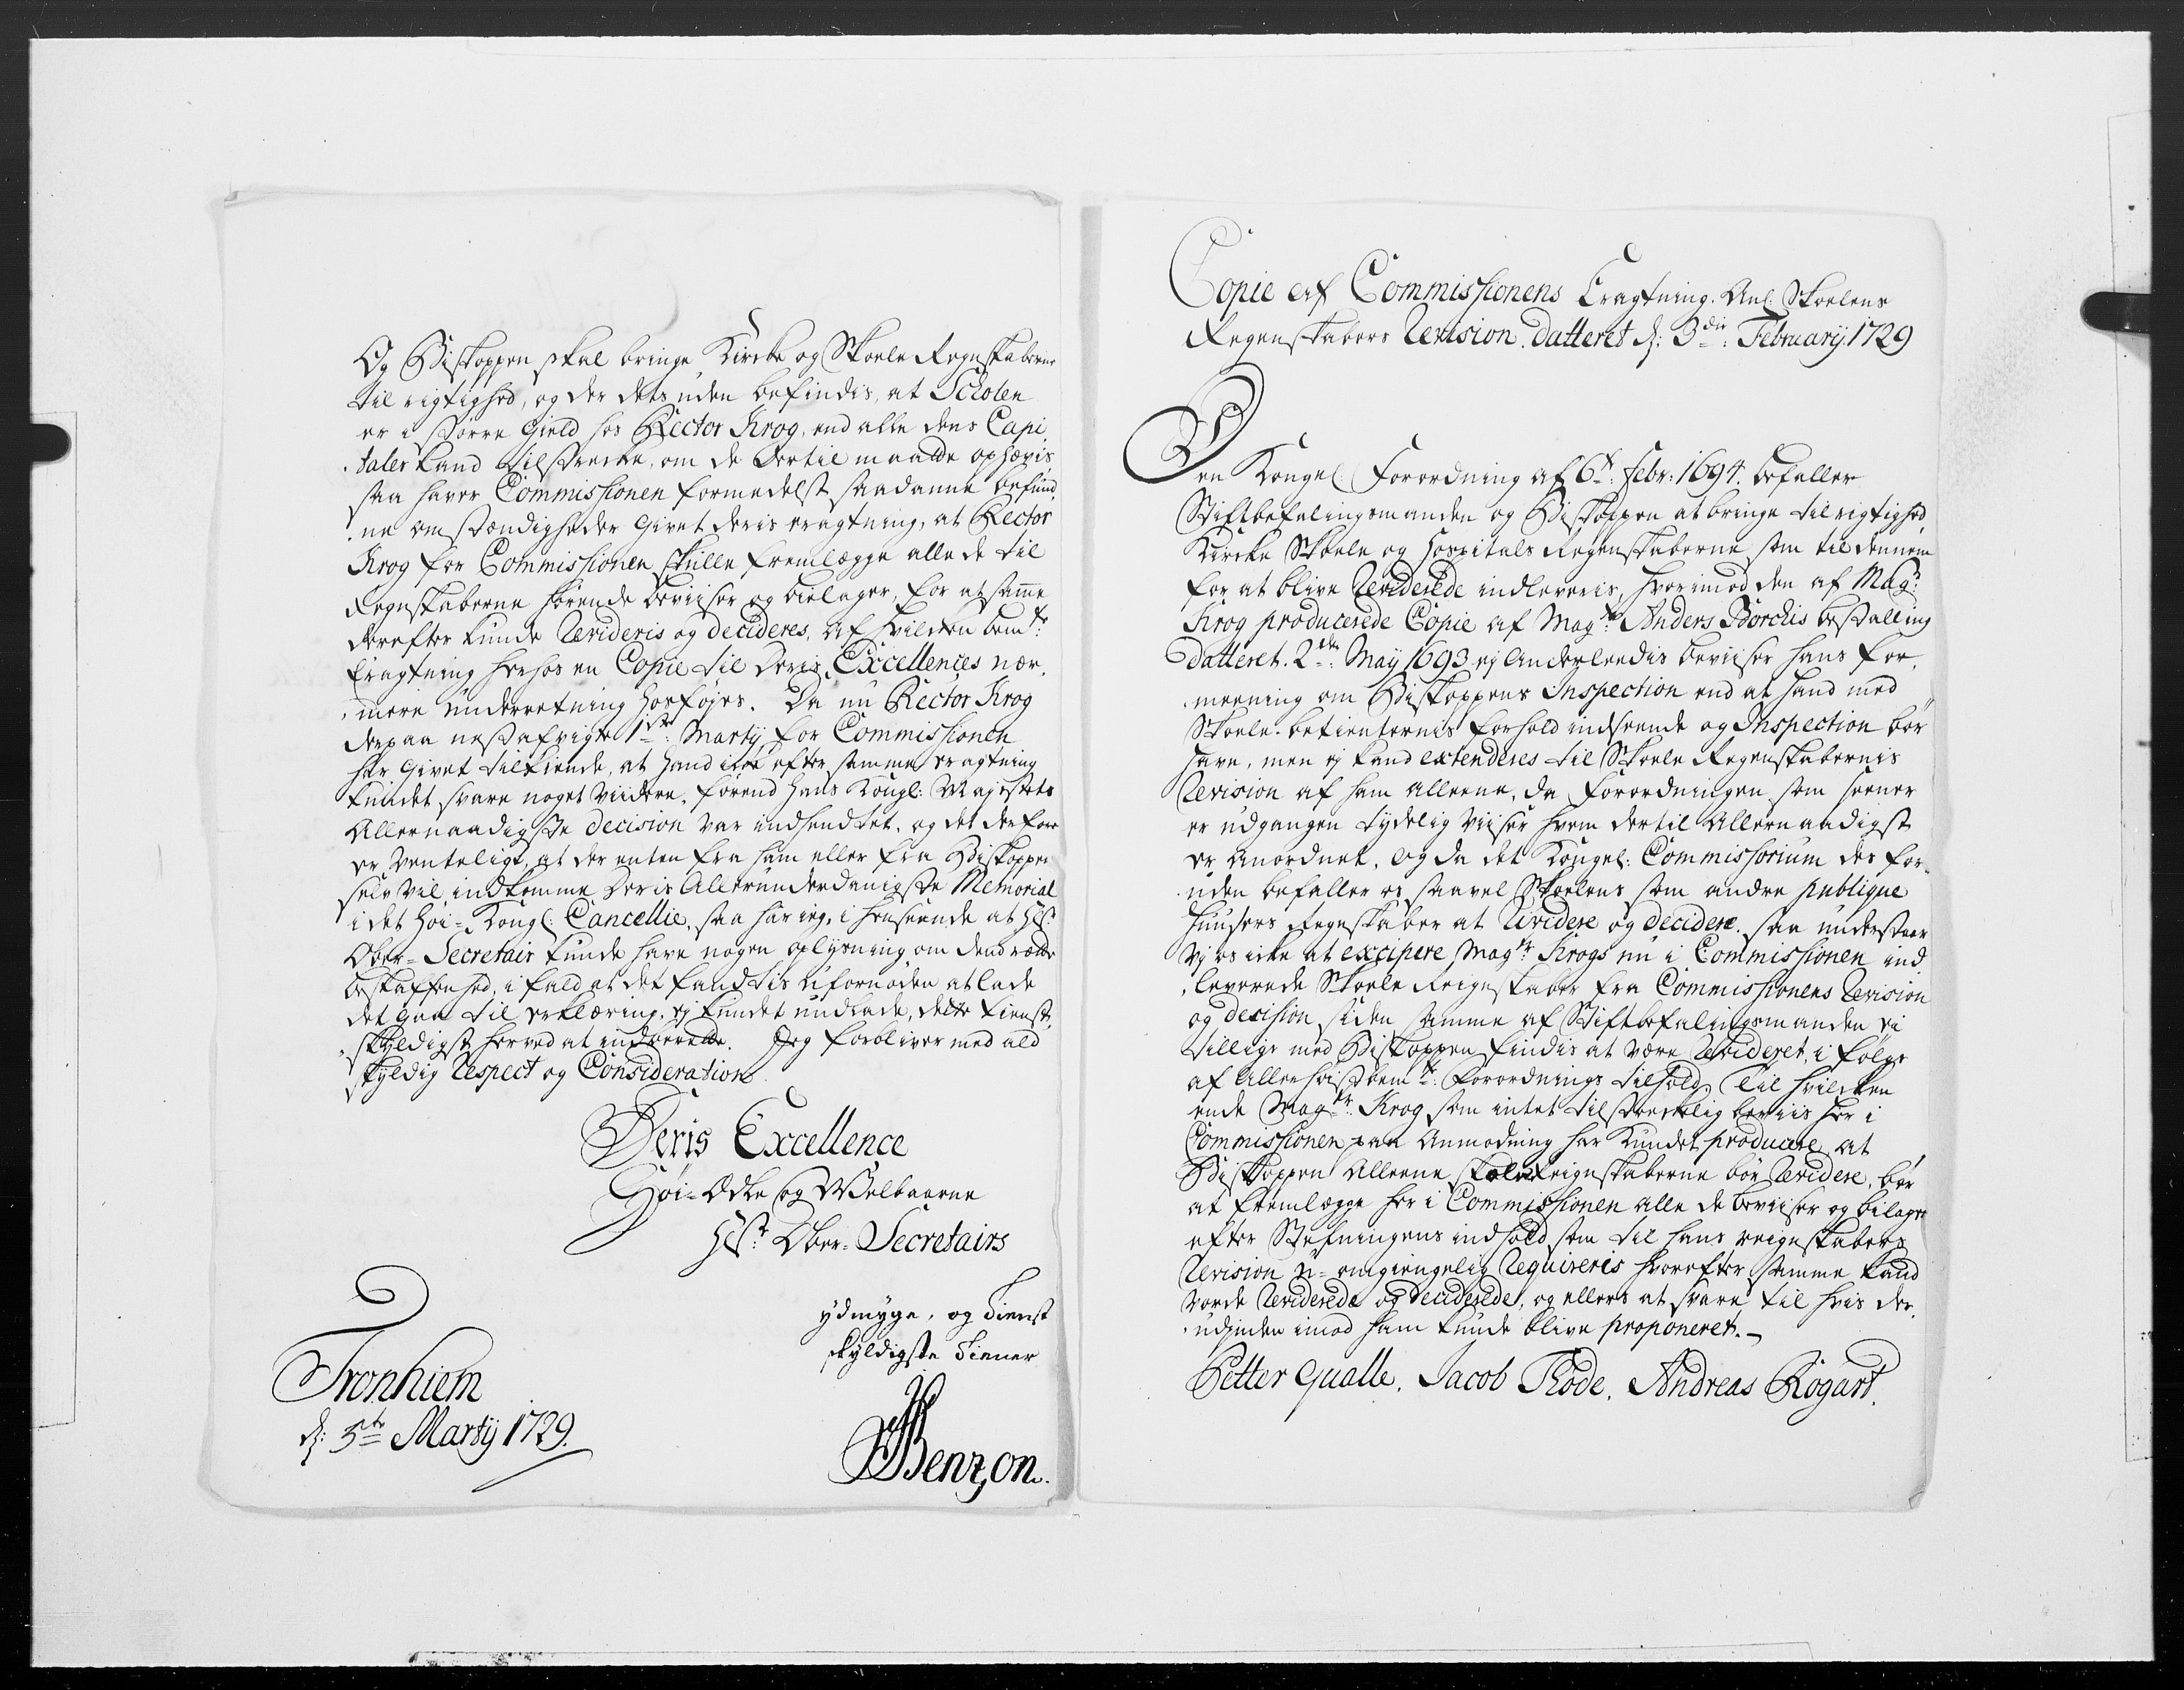 Og Biskoppen skal bringe Kircke og Skoele Regnskaberne
til rigtighed, og der dets uden befindis, at Scholen
er i større Gield hos Rector Krog, end alle dens Capi
taler kand tilstrecke, om de dertil maatte ophævis
saa haver Commissionen formedelst saadanne befund
ne omstændigheder Givet deris eragtning, at Rector
Krog for Commissionen skulle fremlægge alle de til
Regnskaberne hørende beviiser og bielager, for at samme
derefter kunde Revideris og decideres, af hvilcken bemte
Eragtning herhos en Copie til Deris Excellences nær
mere underretning hosføyes. Da nu Rector Krog
derpaa nestafvigte 1ste: Martij for Commissionen
har Givet tilkiende, at hand icke efter samme eragtning
kundet svare noget viidere, førend Hans Kongl: Majestets
Allernaadigste decision var indhendtet, og det derfore
er venteligt, at der enten fra ham eller fra Biskoppen
selv vil indkomme Deris Allerunderdanigste Memorial
i det Høi-Kongl: Cancellie, saa har ieg, i henseende at Hr:
Ober-Secretair kunde have nogen oplysning om dend rette
beskaffenhed, i fald at det fandtis ufornøden at lade
det gaa til erklæring, ej kundet undlade, dette tienst
skyldigst herved at indberette. Jeg forbliver med ald
skyldig Respect og Consideration
Deris Excellence
Høi-Ædle og Welbaarne
Hr: Ober-Secretairs
ydmyge, og Tienst
skyldigste Tiener
Tronhiem
d: 5te Martij 1729.
Benzon.
Copie af Commissionens Eragtning. Anl: Skoelens
Regenskabers Revision. datteret d: 3die: Februarij 1729
Den Kongel: Forordning af 6te: Febr: 1694. befaller
Stiftbefalingsmanden og Biskoppen at bringe til rigtighed
Kircke Skoele og Hospitals Regenskaberne, som til dennem
for at blive Reviderede indleveris, hvorimod den af Magr:
Krog producerede Copie af Magtr Anders Borchis bestalling
datteret. 2den: Maij 1693 ej Anderleedis beviiser hans for
meening om Biskoppens Inspection end at hand med
Skoele-betienternis forhold indseende og Inspection bør
have, men ej kand extenderes til Skoele Regenskabernis
Revision af ham alleene, da Forordningen som seener
er udgangen tydelig viiser hvem dertil Allernaadigst
er anordnet, og da det Kongel: Commissorium des for
uden befaller os saavel Skoelens som andre publique
Huusers Regnskaber at Revidere og decidere, saa understaar
Vj os icke at excipere Magtr Krogs nu i Commissionen ind
leverede Skoele Reignskaber fra Commissionens Revision
og decision, siden samme af Stiftbefalingsmanden ei
tillige med Biskoppen findis at være Revideret, i følge
af Allerhøistbemte: Forordnings tilhold, Til hvilcken
ende Magtr: Krog som intet tilstreckelig beviis her i
Commissionen paa Anmodning har kundet producere, at
Biskoppen Alleene skoele Reignskaberne bør Revidere, bør
at fremlægge her i Commissionen alle de beviiser og bilager
efter Stefningens indhold som til hans reignskabers
Revision u-omgiengelig Requireris hvorefter samme kand
vorde Reviderede og deciderede, og ellers at svare til hvis der
udjnden imod ham kunde blive proponeret.
Petter Qualle. Jacob Thode. Andreas Rogart.